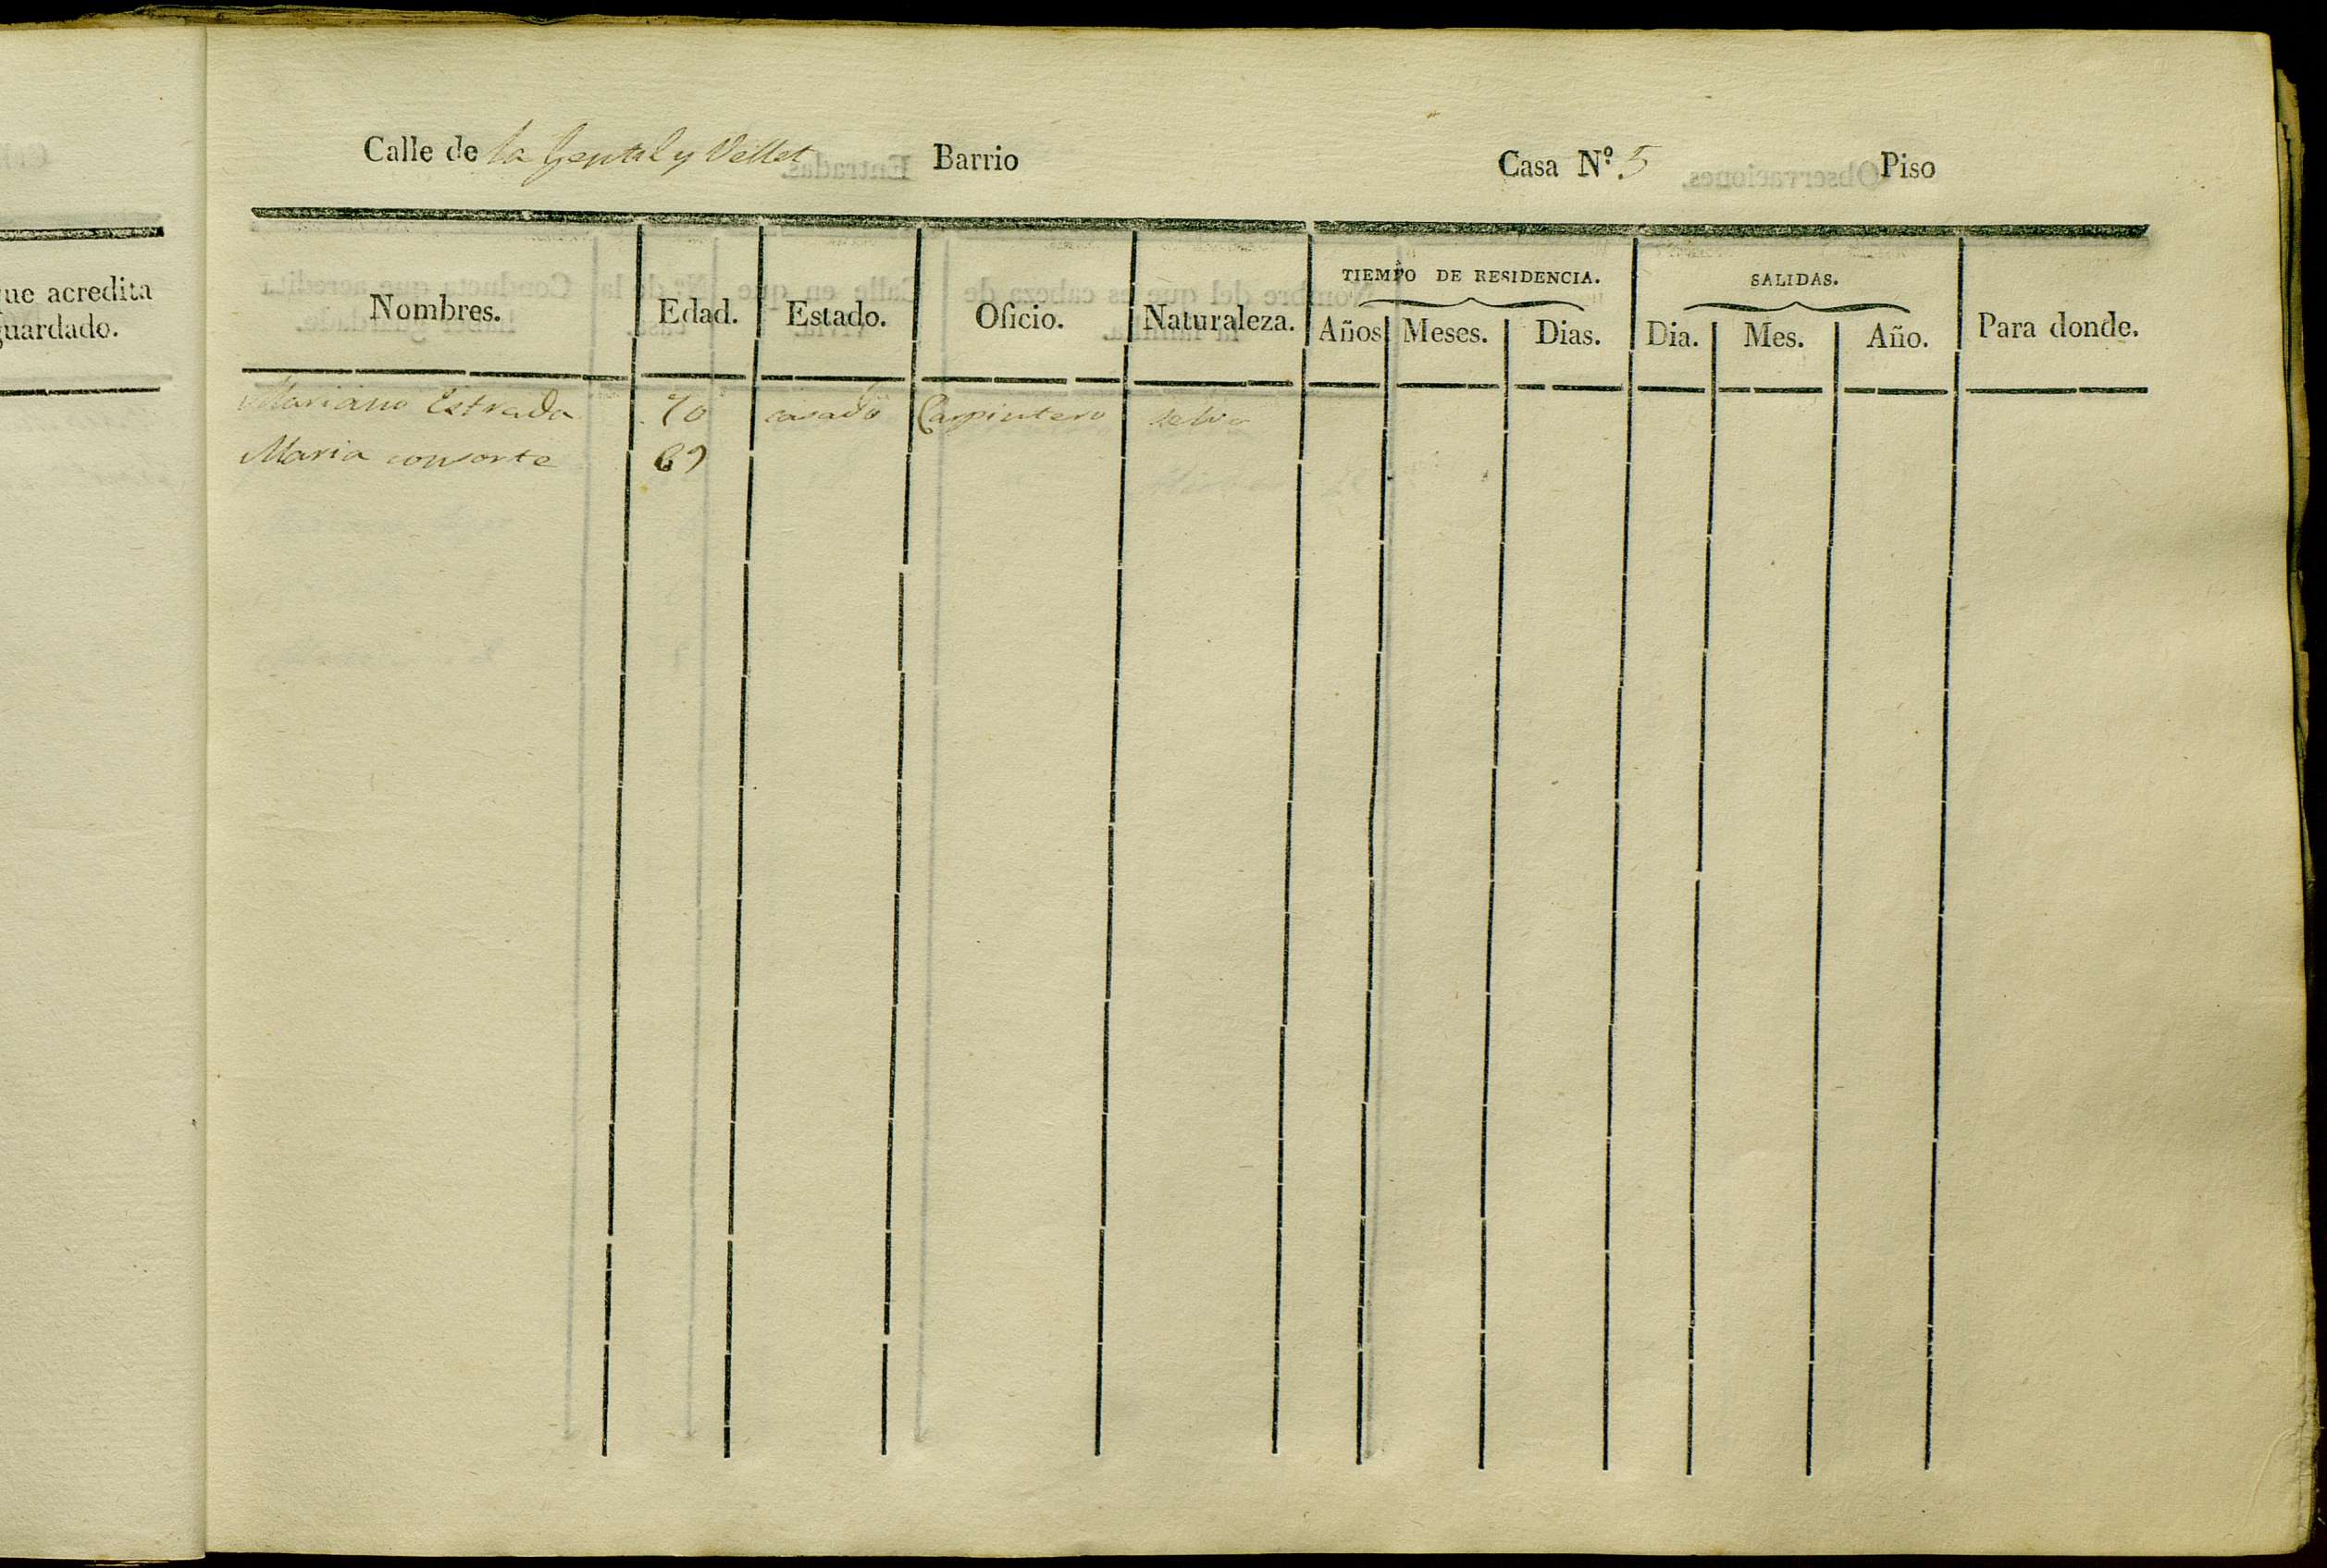 ue acredita
guardado.
Calle de la Gental y Vellet Barrio Casa N.º 5 Piso
Nombres. Edad. Estado. Oficio. Naturaleza. TIEMPO DE RESIDENCIA. SALIDAS. Para donde.
Años Meses. Dias. Dia. Mes. Año.
Mariano Estrada 70 casado Carpintero selva
Maria consorte 69